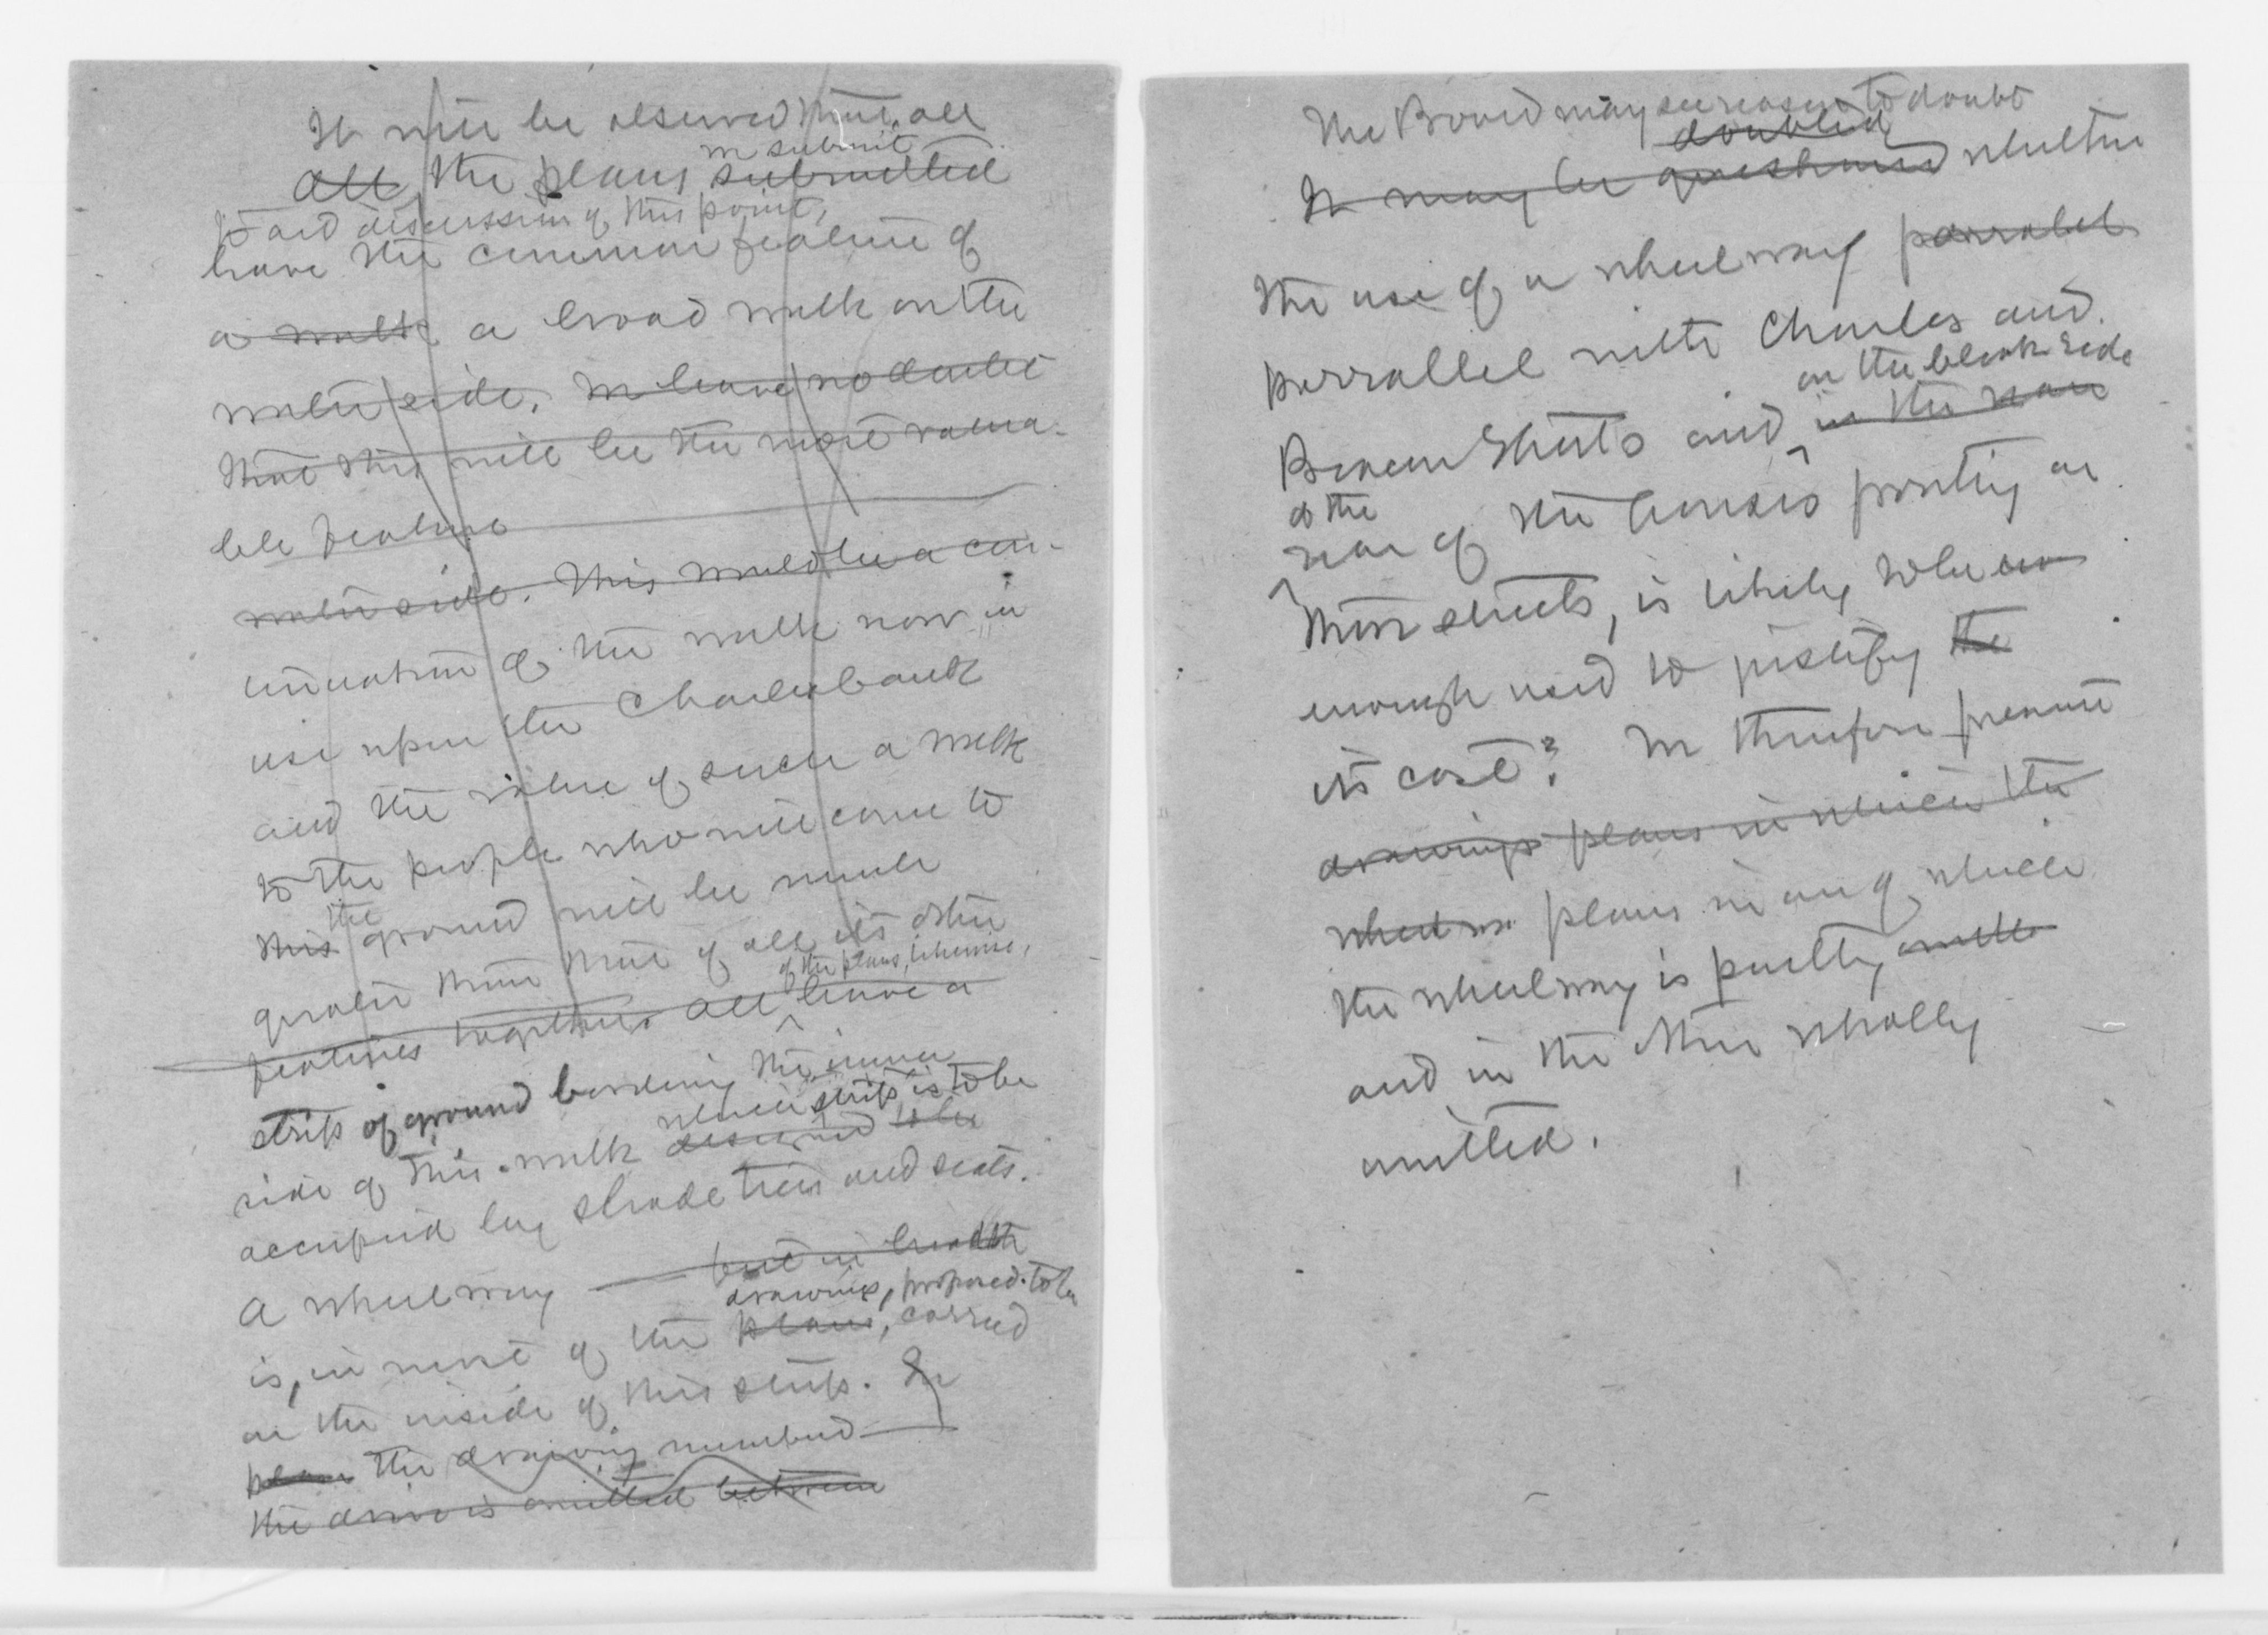 It will be observed that all
all the plans we submit submitted
to aid discussion of this point,
have the common feature of
a walk a broad walk on the
water side. We have no doubt
that this will be the most valua-
ble feature
water side. This would be a con-
tinuation of the walk now in
use upon the Charlesbank
and the value of such a walk
to the people who will come to
this the ground will be much
greater than that of all its other
of the plans, likewise,
features together. All have a
strip of ground bordering the inner
which strip is to be
side of this walk designed to be
occupied by shade trees and seats.
A wheelway but in breadth
drawings, proposed to be
is, in most of the plans, carried
on the inside of this strip. In
plan the drawing numbered
the drive is omitted between
The Board may see reason to doubt
doubted
It may be questioned whether
the use of a wheelway parralel
parrallel with Charles and
on the bleak side
Beacon Streets and in the rear
at the
rear of the houses fronting on
those streets, is likely to be
enough used to justify the
its cost? We therefore present
drawings plans in which the
plans in one of which
the wheelway is partly
and in the other wholly
omitted.